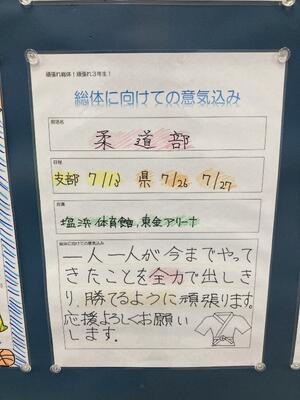 頑張れ総体！頑張れ３年生！
総体に向けての意気込み
部活名
柔道部
日程
支部 7/13 県 7/26 7/27
会場
塩浜体育館，東金アリーナ
総体に向けての意気込み
一人一人が今までやって
きたことを全力で出しき
り、勝てるように頑張ります。
応援よろしくお願い
します。